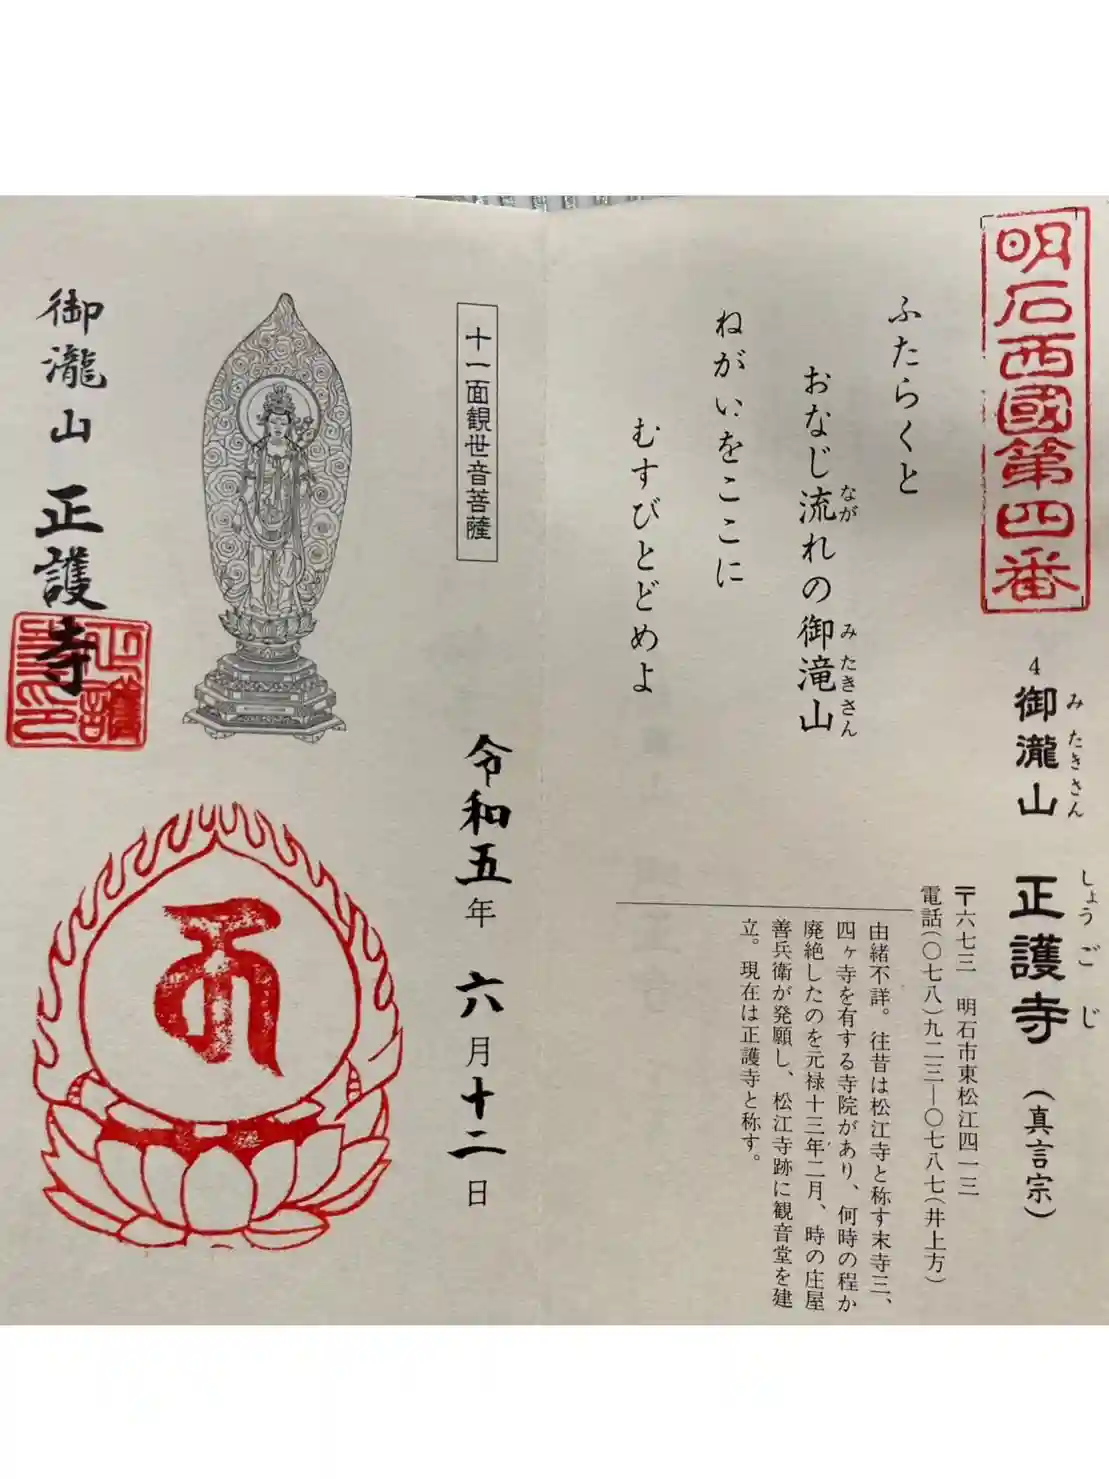 明石西國第四番
4 御瀧山 正護寺 (真言宗)
みたきさん しょうごじ
〒六七三 明石市東松江四一三
電話(〇七八)九二三―〇七八七(井上方)
由緒不詳。往昔は松江寺と称す末寺三、
四ヶ寺を有する寺院があり、何時の程か
廃絶したのを元禄十三年二月、時の庄屋
善兵衛が発願し、松江寺跡に観音堂を建
立。現在は正護寺と称す。
ふたらくと
おなじ流れの御滝山
なが みたきさん
ねがいをここに
むすびとどめよ
十一面観世音菩薩
令和五年 六月十二日
御瀧山 正護寺
正護寺印